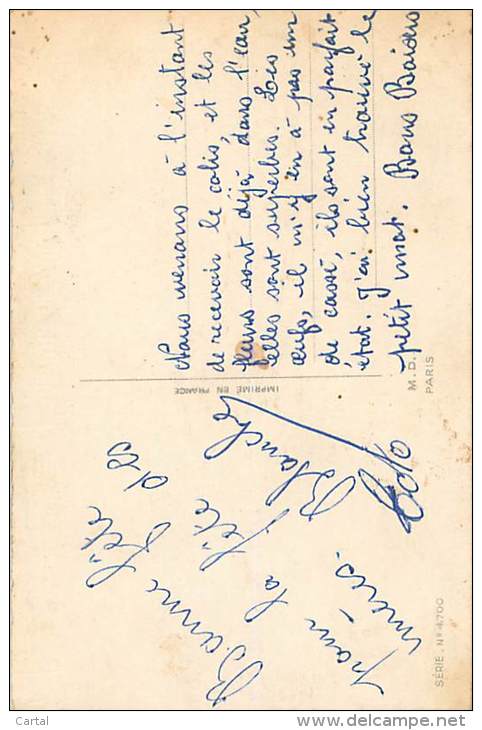 Nous venons à l'instant
de recevoir le colis, et les
fleurs sont déjà dans l'eau,
elles sont superbes. Les
œufs, il n'y en a pas un
de cassé, ils sont en parfait
état. J'ai bien trouvé le
petit mot. Bons Baisers
Bonne fête
pour la fête des
mères. Blanche
IMPRIMÉ EN FRANCE
M.D.
PARIS
SÉRIE. N° 4700
Cartal
www.delcampe.net